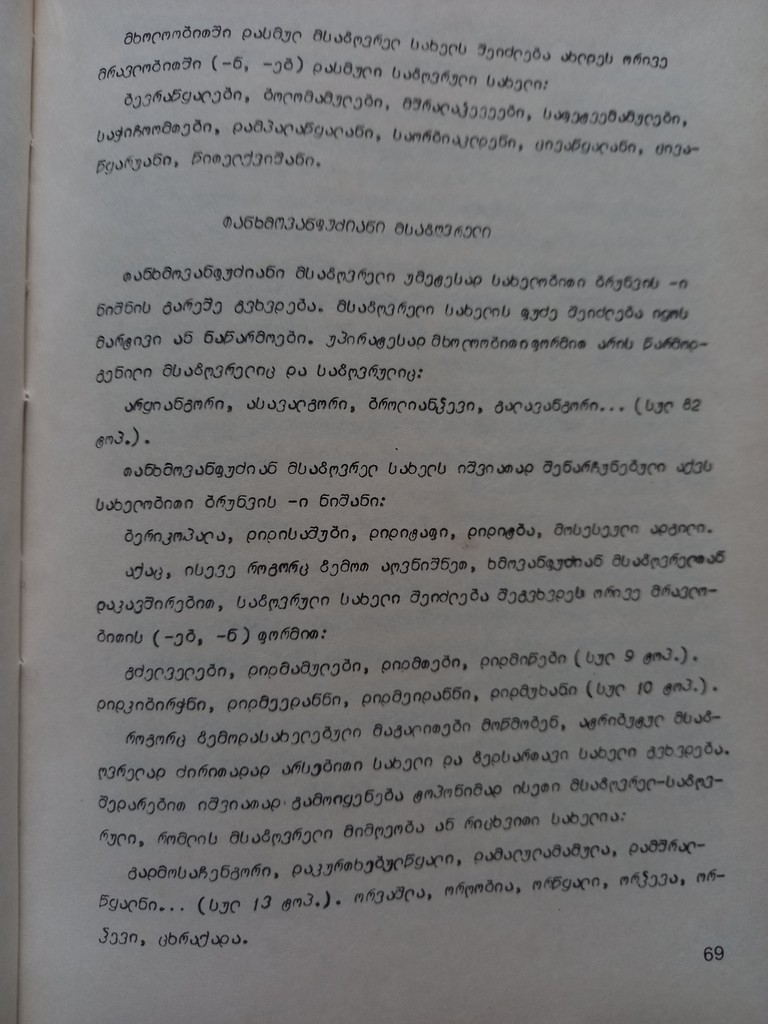 მხოლოობითში დასმულ მსაზღვრელ სახელს შეიძლება ახლდეს ორივე
მრავლობითში (-ნ, -ებ) დასმული საზღვრული სახელი:
ბევრაწყალები, ბოლომამულები, მშრალაჭევეები, საფეტვემამულები,
საჭიჩოომთები, დამპალაწყალანი, საორბიაკლდენი, ცივაწყალანი, ცივა-
წყაროანი, წითელქვიშანი.
თანხმოვანფუძიანი მსაზღვრელი
თანხმოვანფუძიანი მსაზღვრელი უმეტესად სახელობითი ბრუნვის -ი
ნიშნის გარეშე გვხვდება. მსაზღვრელი სახელის ფუძე შეიძლება იყოს
მარტივი ან ნაწარმოები. უპირატესად მხოლოობითი ფორმით არის წარმოდ-
გენილი მსაზღვრელიც და საზღვრულიც:
არყიანგორი, ასავალგორი, ბროლიანჭევი, გალავანგორი... (სულ 82
ტოპ.).
თანხმოვანფუძიან მსაზღვრელ სახელს იშვიათად შენარჩუნებული აქვს
სახელობითი ბრუნვის -ი ნიშანი:
ბერიკოპალა, დიდისაშუბი, დიდიტაფი, დიდიტბა, მოსესეული ადგილი.
აქაც, ისევე როგორც ზემოთ აღვნიშნეთ, ხმოვანფუძიან მსაზღვრელთან
დაკავშირებით, საზღვრული სახელი შეიძლება შეგვხვდეს ორივე მრავლო-
ბითის (-ებ, -ნ) ფორმით:
გძელველები, დიდმამულები, დიდმთები, დიდმიწები (სულ 9 ტოპ.).
დიდკიბირჭნი, დიდმეედანნი, დიდმეიდანნი, დიდმუხანი (სულ 10 ტოპ.).
როგორც ზემოდასახელებული მაგალითები მოწმობენ, ატრიბუტულ მსაზ-
ღვრელად ძირითადად არსებითი სახელი და ზედსართავი სახელი გვხვდება.
შედარებით იშვიათად გამოიყენება ტოპონიმად ისეთი მსაზღვრელ-საზღვ-
რული, რომლის მსაზღვრელი მიმღეობა ან რიცხვითი სახელია:
გადმოსაჩენგორი, დაკურთხებულწყალი, დამალულამამულა, დამშრალ-
წყალნი... (სულ 13 ტოპ.). ორვაშლა, ორღობია, ორწყალი, ორჭევა, ორ-
ჭევი, ცხრაქადა.
69